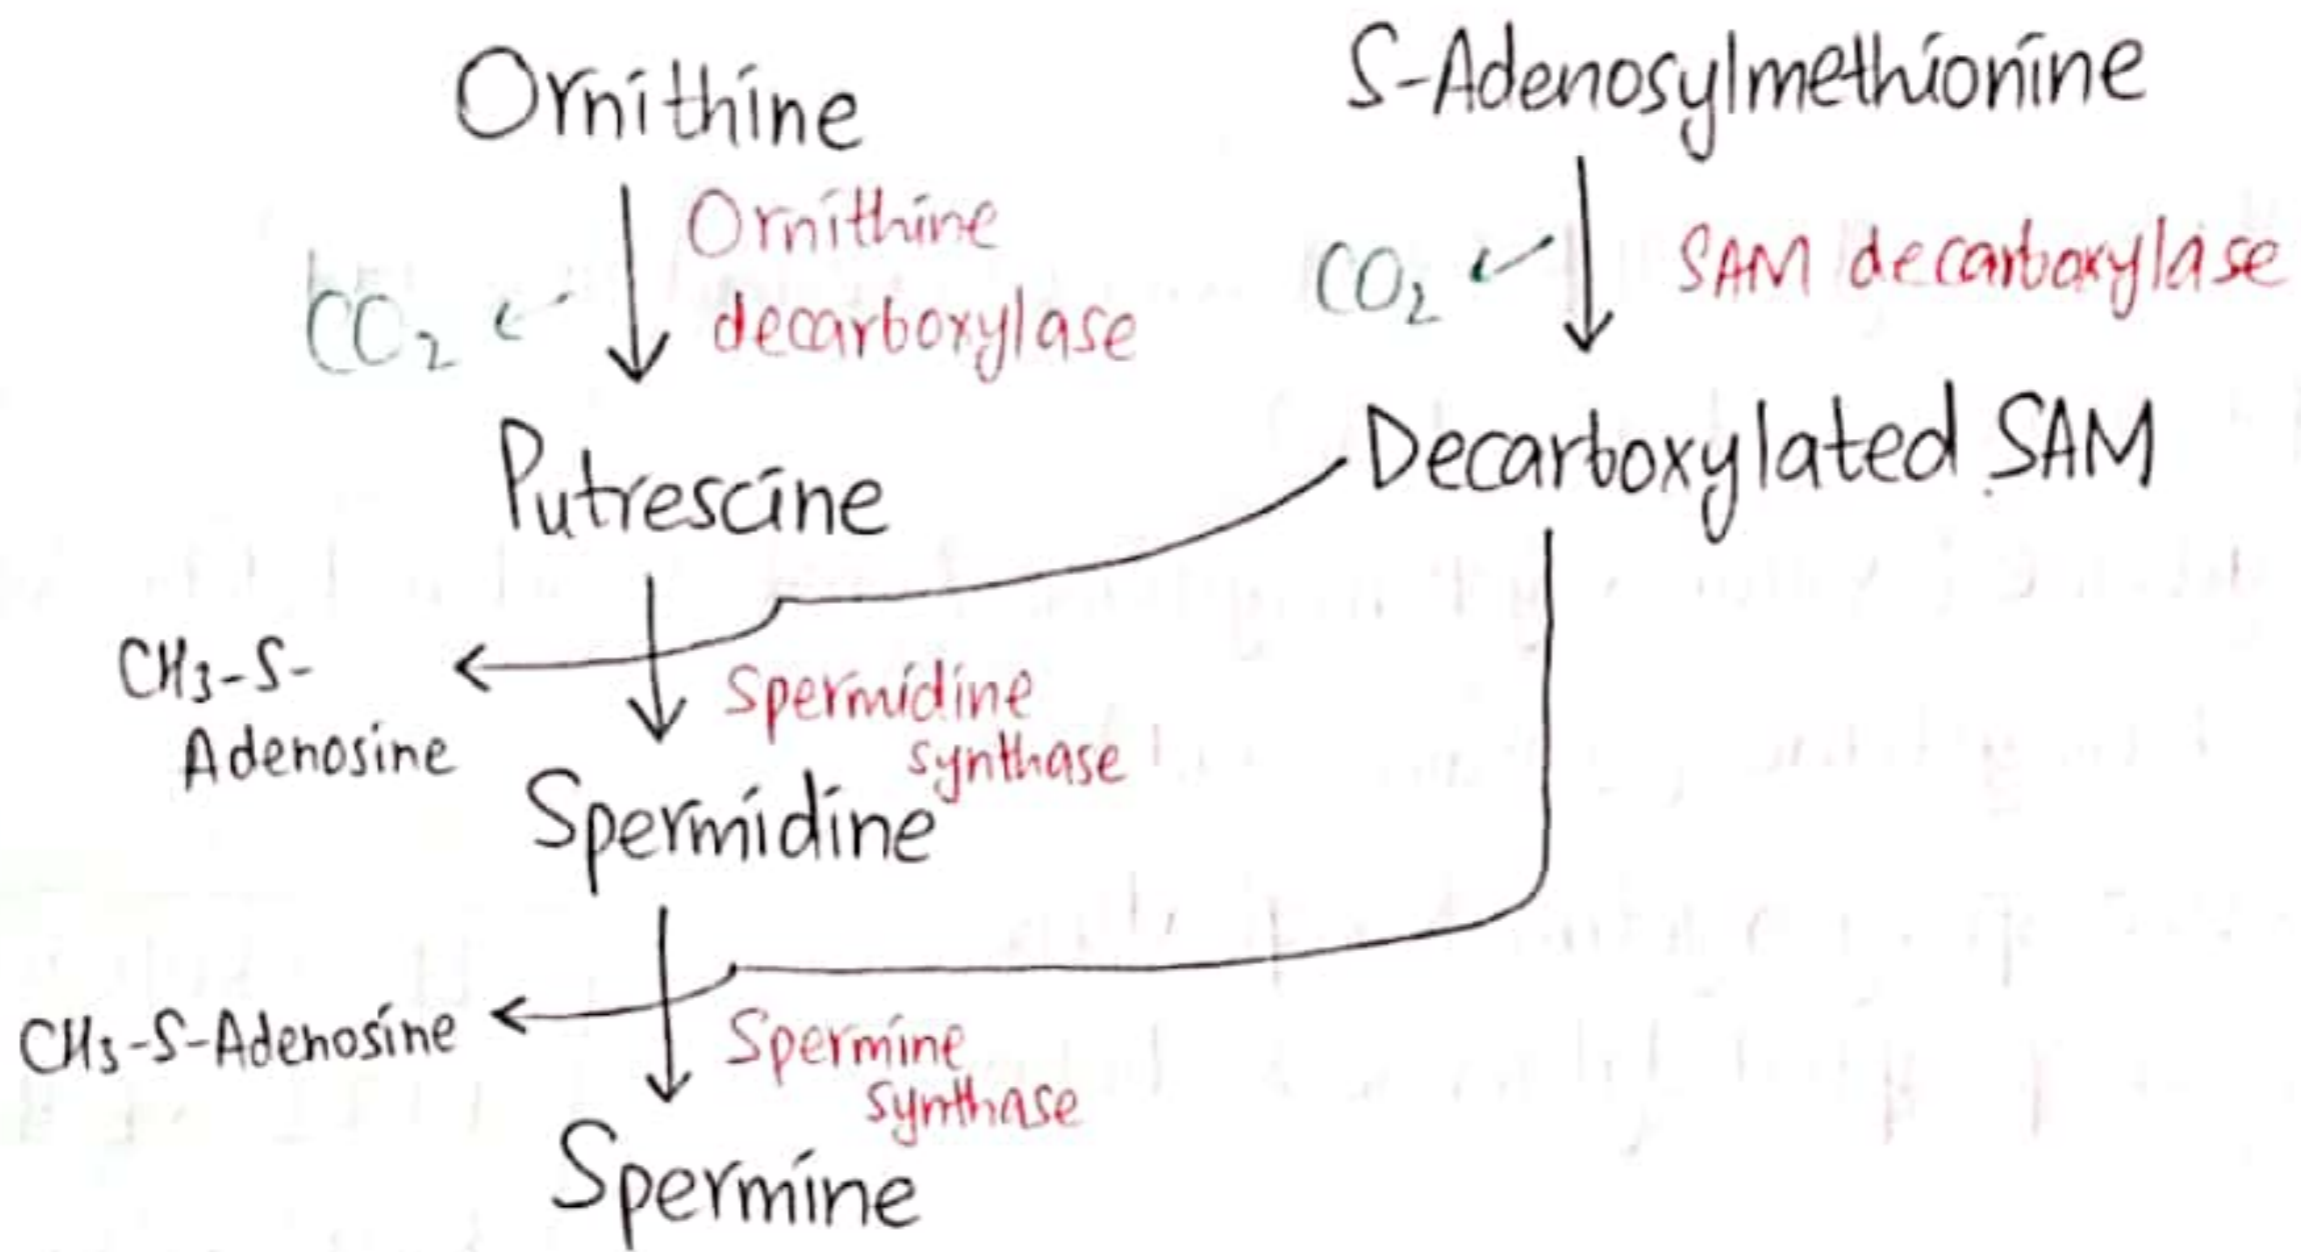 Ornithine
S-Adenosylmethionine
Ornithine
decarboxylase
CO₂
CO₂
SAM decarboxylase
Putrescine
Decarboxylated SAM
CH₃-S-
Adenosine
Spermidine
synthase
Spermidine
CH₃-S-Adenosine
Spermine
synthase
Spermine